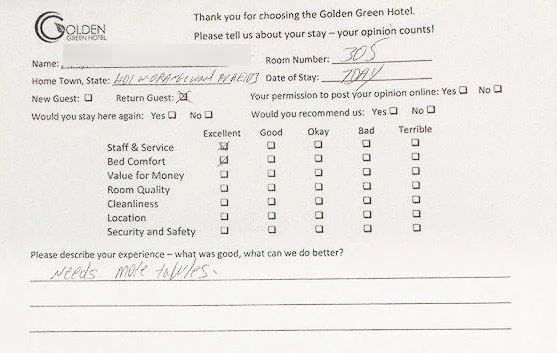 GOLDEN
GREEN HOTEL
Thank you for choosing the Golden Green Hotel.
Please tell us about your stay – your opinion counts!
Name:
Room Number: 305
Home Town, State: Date of Stay: 7DAY
New Guest: ☐ Return Guest: ☒ Your permission to post your opinion online: Yes ☐ No ☐
Would you stay here again: Yes ☐ No ☐ Would you recommend us: Yes ☐ No ☐
Excellent Good Okay Bad Terrible
Staff & Service ☒ ☐ ☐ ☐ ☐
Bed Comfort ☒ ☐ ☐ ☐ ☐
Value for Money ☐ ☐ ☐ ☐ ☐
Room Quality ☐ ☐ ☐ ☐ ☐
Cleanliness ☐ ☐ ☐ ☐ ☐
Location ☐ ☐ ☐ ☐ ☐
Security and Safety ☐ ☐ ☐ ☐ ☐
Please describe your experience – what was good, what can we do better?
Needs more towles.